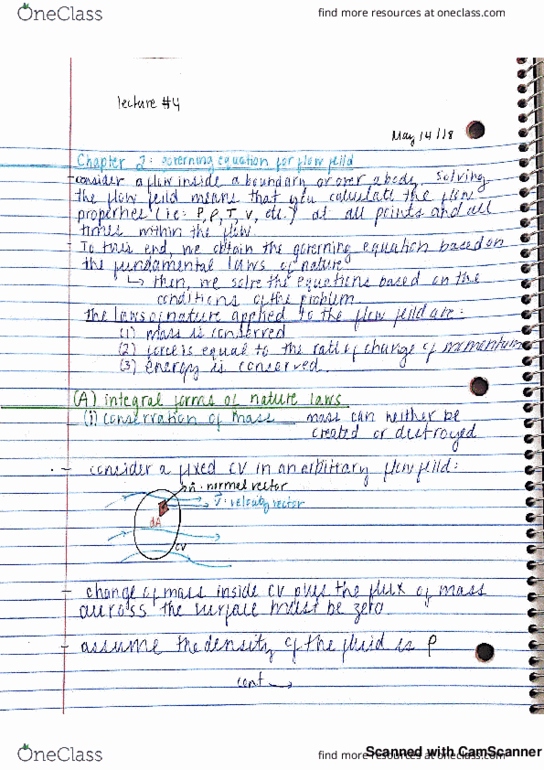 OneClass
find more resources at oneclass.com
lecture #4
May 14/18
Chapter 2: governing equation for flow feild
- consider a flow inside a boundary or over a body. Solving
the flow feild means that you calculate the flow
properties (i.e: P, ρ, T, V, etc.) at all points and all
times within the flow.
- To this end, we obtain the governing equation based on
the fundamental laws of nature
↳ then, we solve the equations based on the
conditions of the problem
the laws of nature applied to the flow feild are:
(1) mass is conserved
(2) force is equal to the rate of change of momentum
(3) energy is conserved.
(A) integral forms of nature laws
(i) conservation of mass mass can neither be
created or destroyed
- consider a fixed CV in an arbitrary flow feild:
n̂: normal vector
v⃗: velocity vector
dA
CV
- change of mass inside CV plus the flux of mass
across the surface must be zero
- assume the density of the fluid is ρ
cont →
OneClass
find more resources at oneclass.com
Scanned with CamScanner